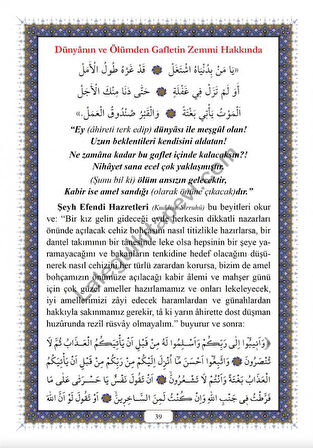 Dünyânın ve Ölümden Gafletin Zemmi Hakkında
﴿يَا مَنْ بِدُنْيَاهُ اشْتَغَلْ ۞ قَدْ غَرَّهُ طُولُ الْأَمَلْ
أَوَلَمْ يَزَلْ فِي غَفْلَةٍ ۞ حَتَّى دَنَا مِنْكَ الْأَجَلْ
اَلْمَوْتُ يَأْتِي بَغْتَةً ۞ وَالْقَبْرُ صَنْدُوقُ الْعَمَلْ﴾
"Ey (âhireti terk edip) dünyâsı ile meşgûl olan!
Uzun beklentileri kendisini aldatan!
Ne zamâna kadar bu gaflet içinde kalacaksın?!
Nihâyet sana ecel çok yaklaşmıştır.
(Şunu bil ki) ölüm ansızın gelecektir,
Kabir ise amel sandığı (olarak önüne çıkacak)dır."
Şeyh Efendi Hazretleri (Kuddise Sirruhû) bu beyitleri okur
ve: "Bir kız gelin gideceği evde herkesin dikkatli nazarları
önünde açılacak cehiz bohçasını nasıl titizlikle hazırlarsa, bir
dantel takımının bir tânesinde leke olsa hepsinin bir şeye ya-
ramayacağını ve bakanların tenkidine hedef olacağını düşü-
nerek nasıl cehizini her türlü zarardan korursa, bizim de amel
bohçamızın önümüze açılacağı kabir âlemi ve mahşer günü
için çok güzel ameller hazırlamamız ve onları lekeleyecek,
iyi amellerimizi zâyi edecek haramlardan ve günahlardan
hakkıyla sakınmamız gerekir, tâ ki yarın âhirette dost düşman
huzûrunda rezil rüsvây olmayalım." buyurur ve sonra:
﴿وَأَنِيبُوا إِلَى رَبِّكُمْ وَأَسْلِمُوا لَهُ مِنْ قَبْلِ أَنْ يَأْتِيَكُمُ الْعَذَابُ ثُمَّ لَا
تُنْصَرُونَ ۞ وَاتَّبِعُوا أَحْسَنَ مَا أُنْزِلَ إِلَيْكُمْ مِنْ رَبِّكُمْ مِنْ قَبْلِ أَنْ يَأْتِيَكُمُ
الْعَذَابُ بَغْتَةً وَأَنْتُمْ لَا تَشْعُرُونَ ۞ أَنْ تَقُولَ نَفْسٌ يَا حَسْرَتَى عَلَى مَا
فَرَّطْتُ فِي جَنْبِ اللَّهِ وَإِنْ كُنْتُ لَمِنَ السَّاخِرِينَ ۞ أَوْ تَقُولَ لَوْ أَنَّ اللَّهَ
39